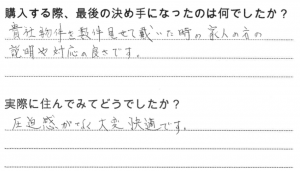 購入する際、最後の決め手になったのは何でしたか？
貴社物件を数件見せて戴いた時の家人の方の
説明や対応の良さです。
実際に住んでみてどうでしたか？
圧迫感がなく大変快適です。